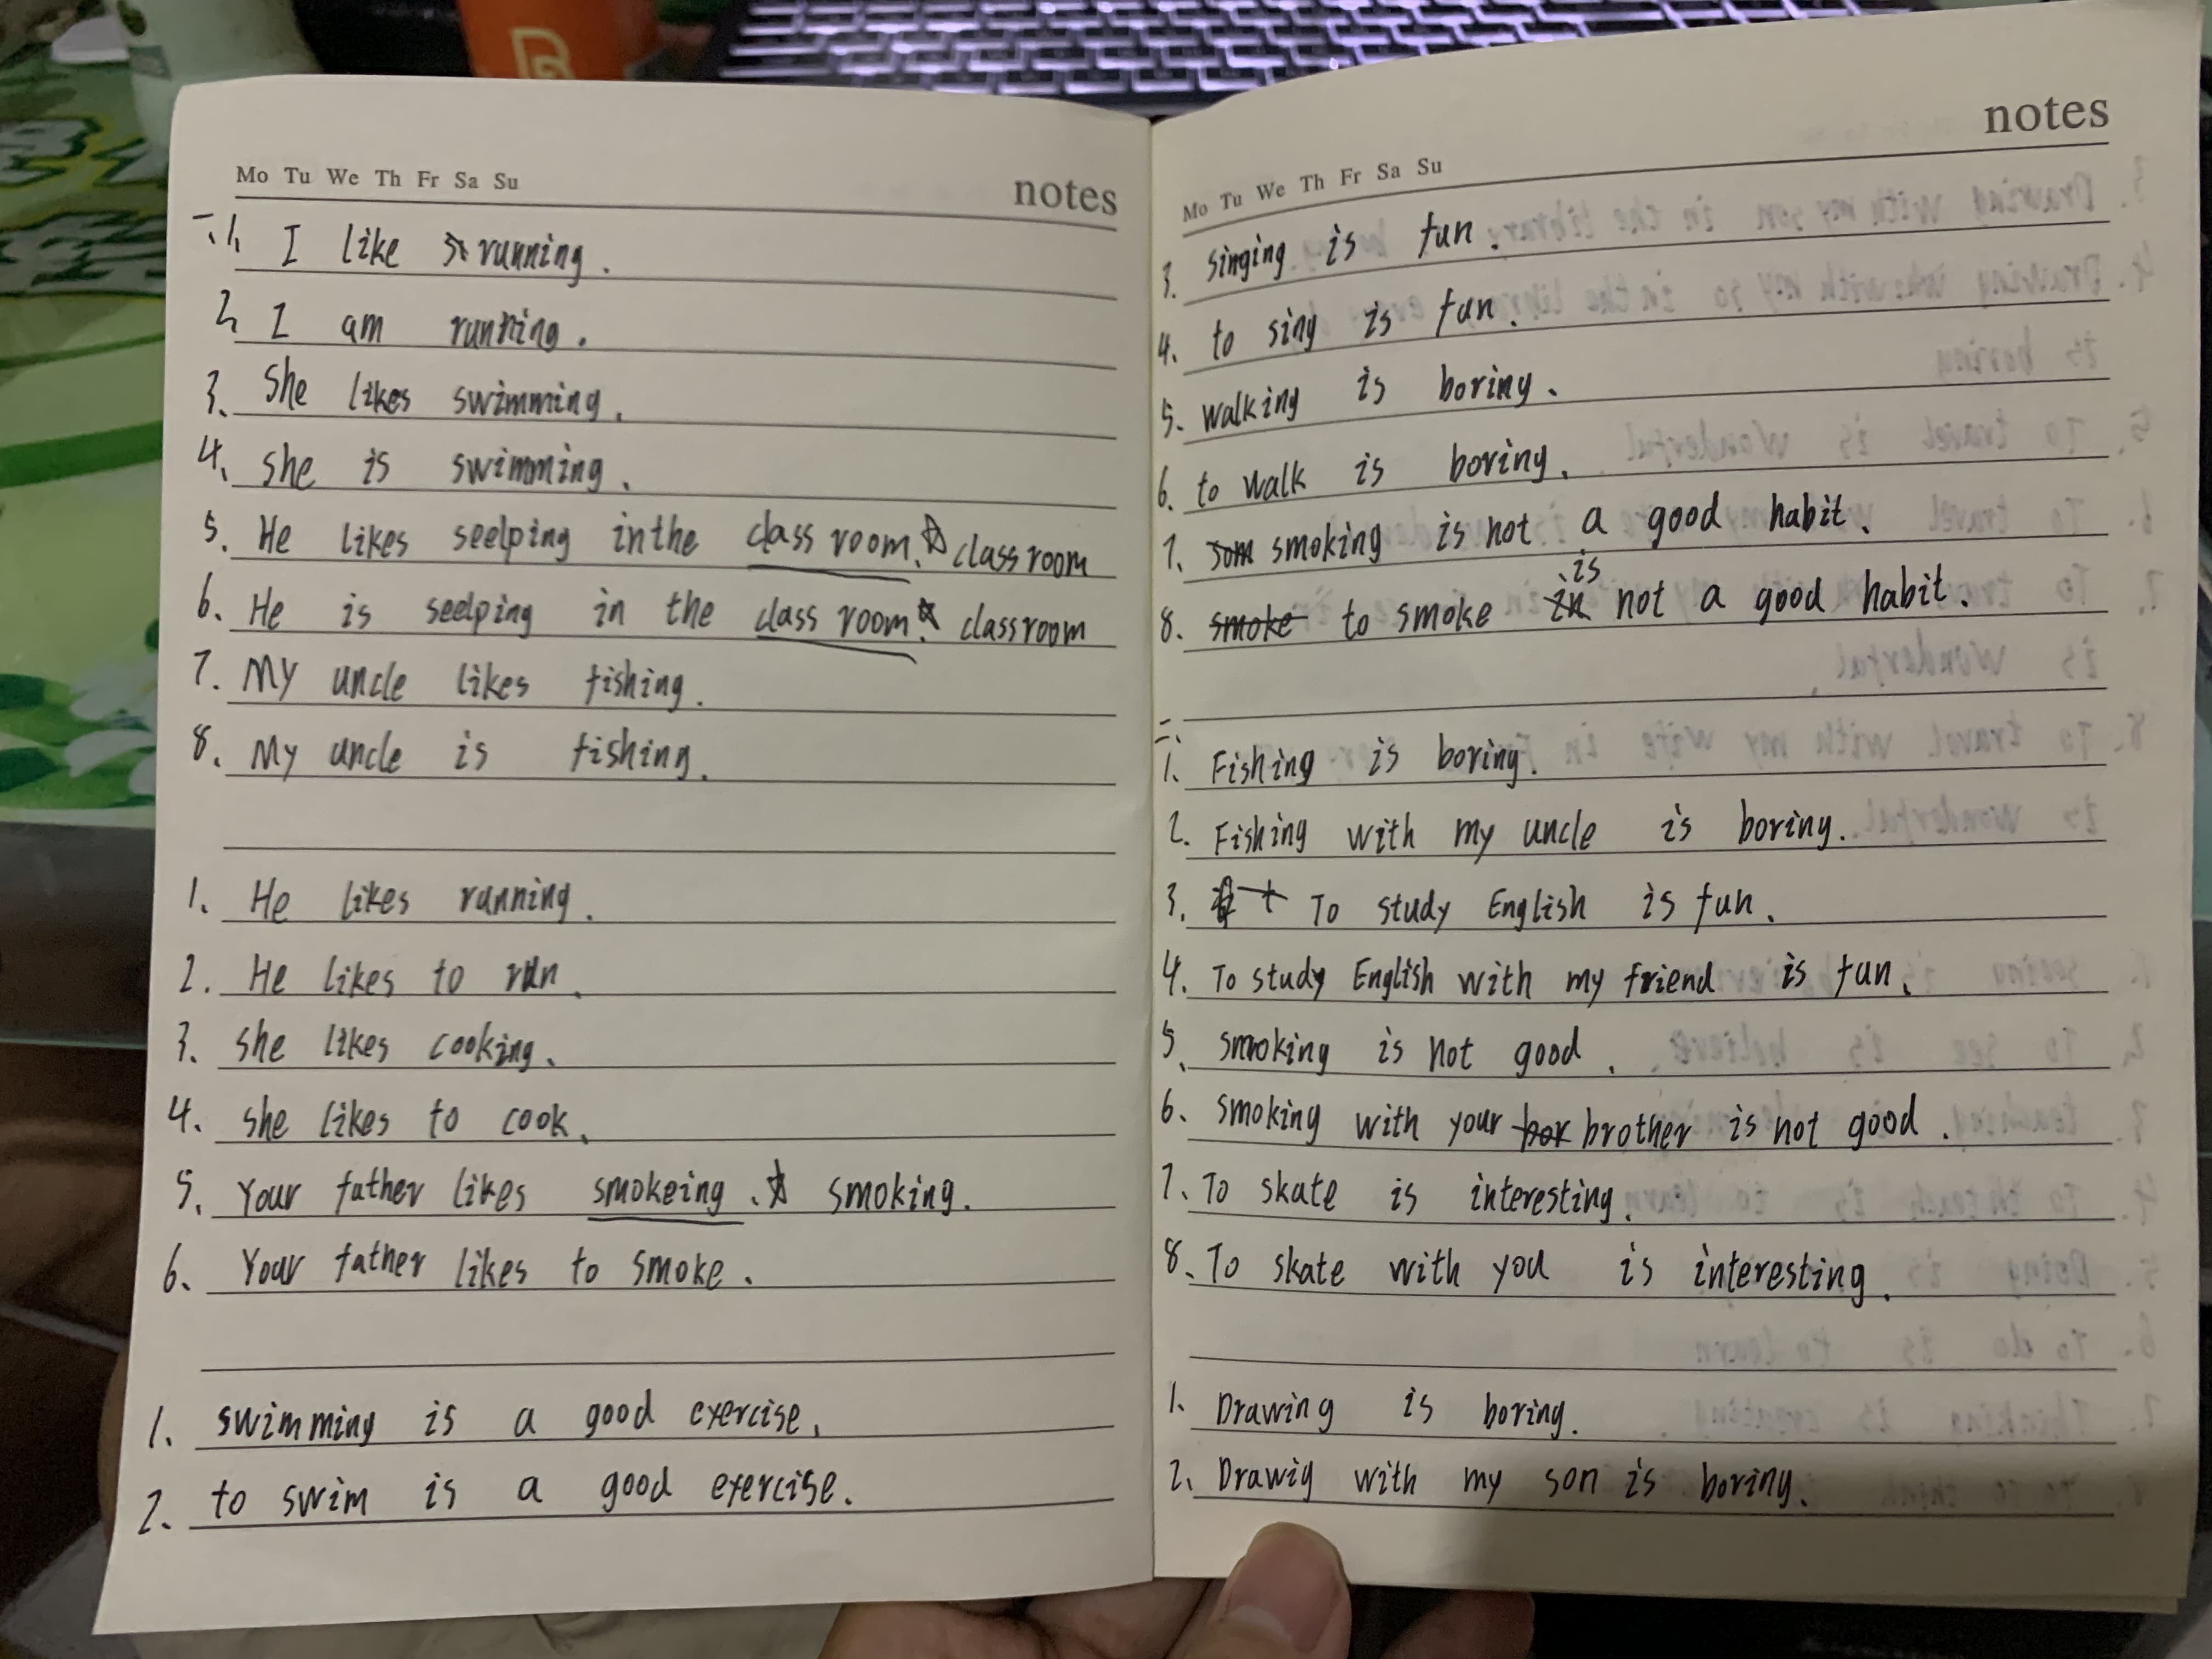 Mo Tu We Th Fr Sa Su
notes
一.1. I like running.
2. I am running.
3. She likes swimming.
4. she is swimming.
5. He likes seelping in the class room. ☆ classroom
6. He is seelping in the class room. ☆ classroom
7. My uncle likes fishing.
8. My uncle is fishing.
1. He likes running.
2. He likes to run.
3. she likes cooking.
4. she likes to cook.
5. Your father likes smokeing. ☆ smoking.
6. Your father likes to smoke.
1. swimming is a good exercise.
2. to swim is a good exercise.
Mo Tu We Th Fr Sa Su
notes
3. singing is fun.
4. to sing is fun.
5. walking is boring.
6. to walk is boring.
7. som smoking is not a good habit.
8. smoke to smoke in is not a good habit.
二.
1. Fishing is boring.
2. Fishing with my uncle is boring.
3. To study English is fun.
4. To study English with my friend is fun.
5. smoking is not good.
6. smoking with your brother is not good.
7. To skate is interesting.
8. To skate with you is interesting.
1. Drawing is boring.
2. Drawig with my son is boring.